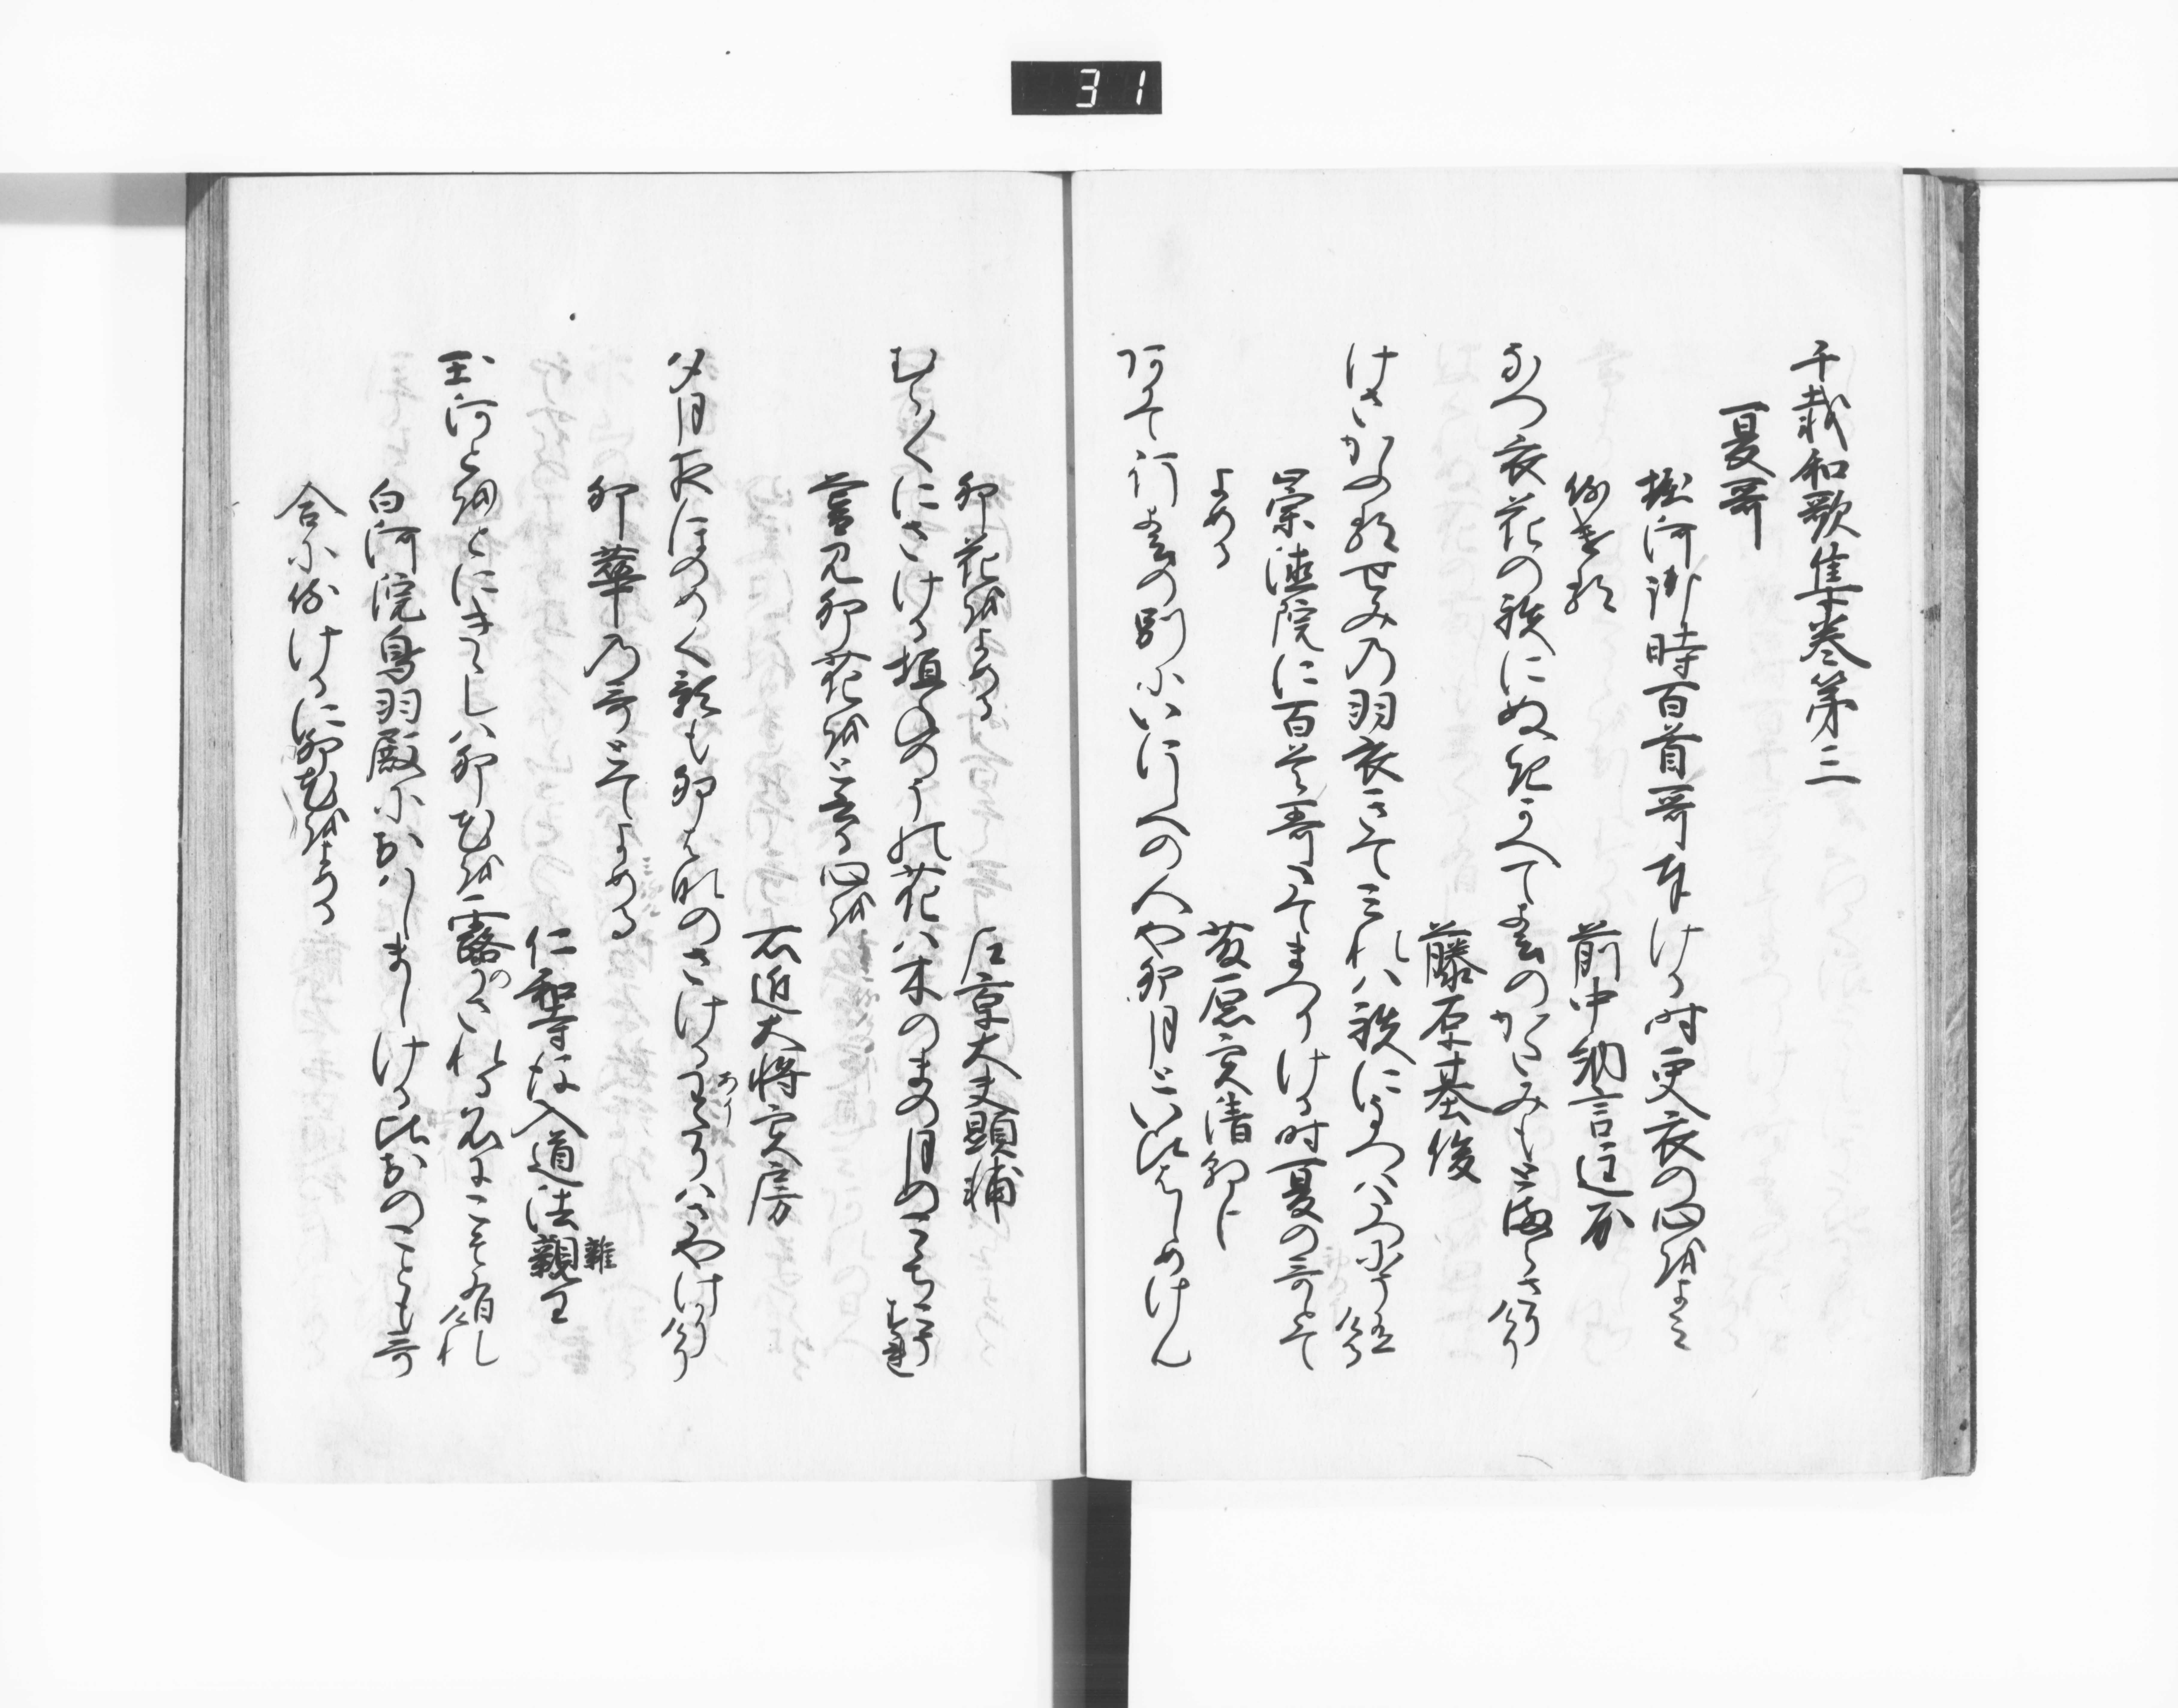 31
千載和歌集巻第三
夏哥
堀河御時百首哥奉ける時更衣の心をよみ
侍ける
前中納言匡房
なつ衣花の袂にぬきかへて春のかたみもとまらさりけり
藤原基俊
けさかふるせみの羽衣きてみれは袂になつはたつにそ有ける
崇徳院に百首哥たてまつりける時夏の哥とて
よめる
藤原実清朝臣
あかて行春の別にいにしへの人や卯月といひはしめけん
卯花をよめる
左京大夫顕輔
むらむらにさける垣ねのうの花は木のまの月の心ちこそすれ
暮見卯花といへる心を
右近大将実房
夕月夜ほのめく影も卯花のさけるわたりはさやけかりけり
卯華乃哥とてよめる
仁和寺後入道法親王
玉河と音にききしは卯花を露のかされる名にこそ有けれ
白河院鳥羽殿におはしましける時おのことも哥
合し侍けるに卯花をよめる